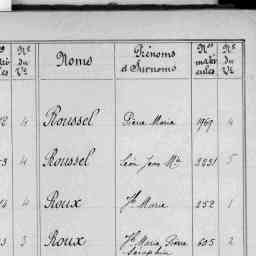 Nº du Vt Noms Prénoms et Surnoms Nos matricules Nº du Vt
4 Roussel Pierre Marie 1969 4
4 Roussel Léon Jean Mie 3231 5
4 Roux Jh Marie 252 1
3 Roux Jh Marie Pierre Séraphin 605 2